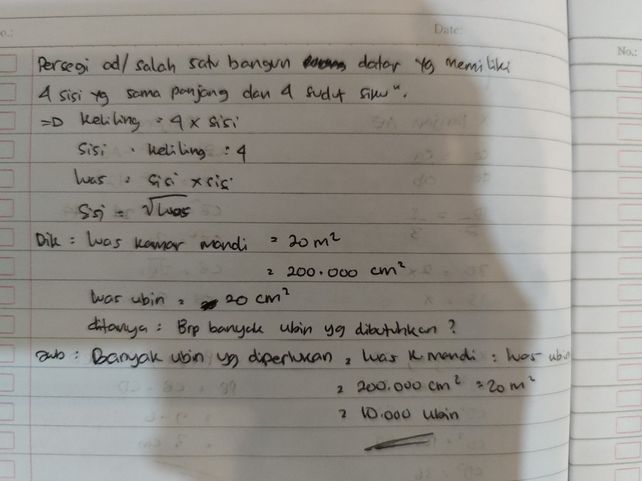 o.:
Date:
No.:
Persegi ad/ salah satu bangun datar yg memiliki
4 sisi yg sama panjang dan 4 sudut siku".
=D Keliling = 4 x sisi
Sisi = keliling : 4
Luas = sisi x sisi
Sisi = √luas
Dik : Luas kamar mandi = 20 m²
= 200.000 cm²
luas ubin = 20 cm²
ditanya : Brp banyak ubin yg dibutuhkan ?
Jwb : Banyak ubin yg diperlukan = luas k. mandi : luas ubin
= 200.000 cm² = 20 m²
= 10.000 ubin